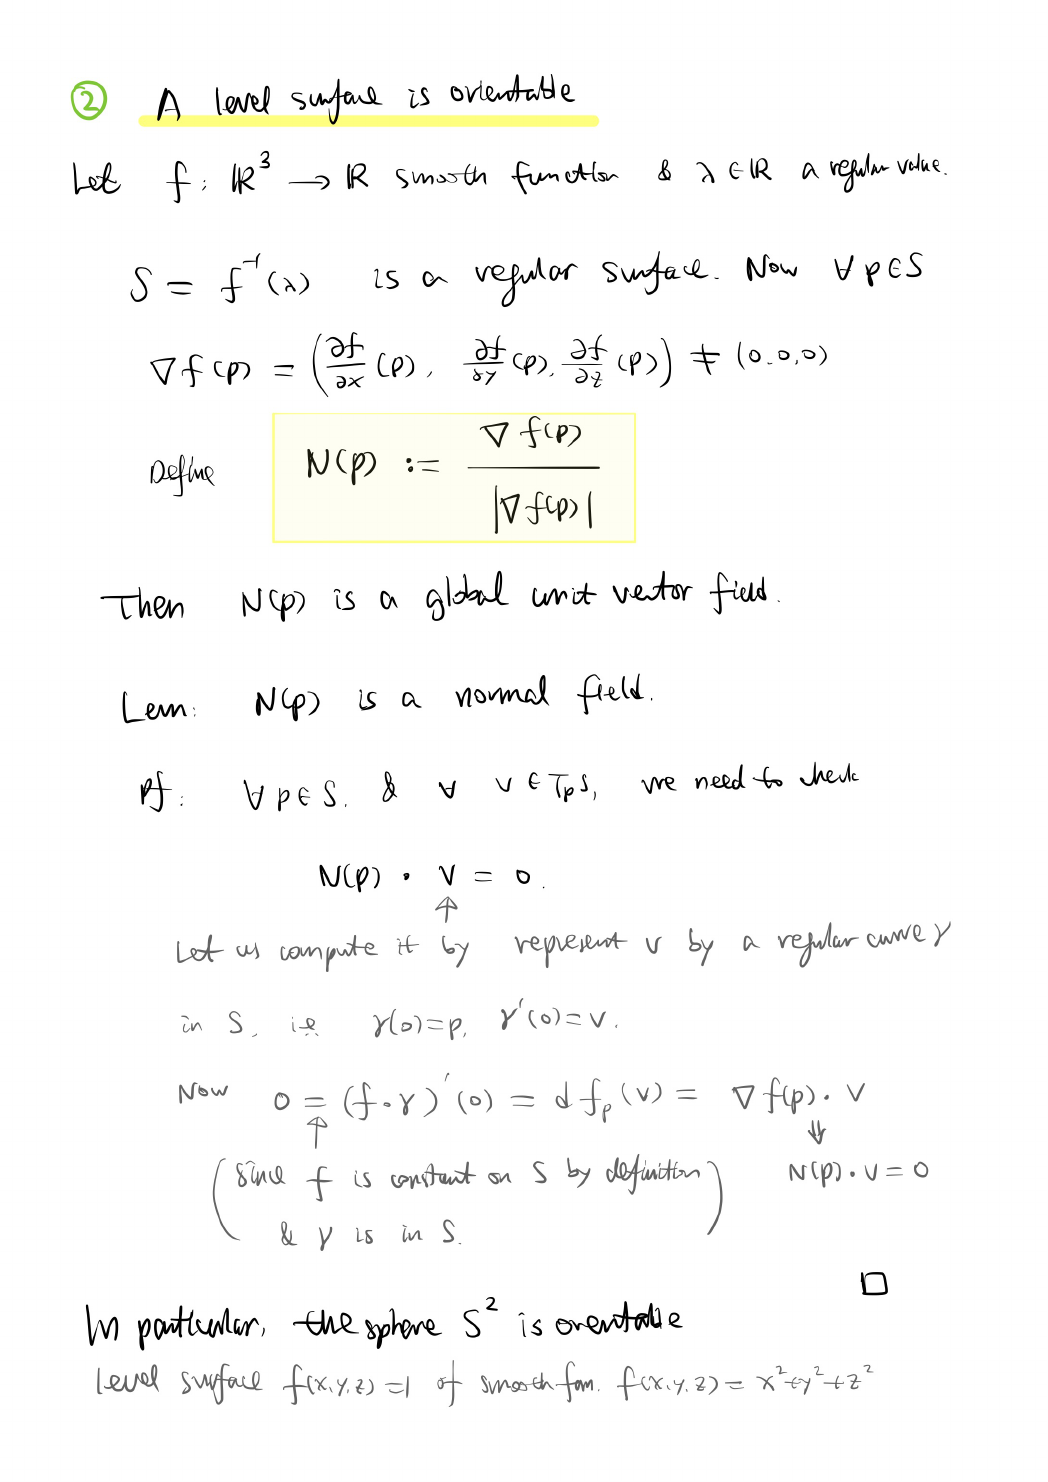 ② A level surface is orientable
Let f: ℝ³ → ℝ smooth function & λ∈ℝ a regular value.
S = f⁻¹(λ) is a regular surface. Now ∀p∈S
∇f(p) = (∂f/∂x (p), ∂f/∂y (p), ∂f/∂z (p)) ≠ (0,0,0)
Define N(p) := ∇f(p) / |∇f(p)|
Then N(p) is a global unit vector field.
Lem: N(p) is a normal field.
Pf: ∀p∈S, & ∀ v∈TₚS, we need to check
N(p) · v = 0.
↑
Let us compute it by represent v by a regular curve γ
in S, i.e. γ(0)=p, γ'(0)=v.
Now 0 = (f∘γ)'(0) = dfₚ(v) = ∇f(p)·v
↑ ⇓
(since f is constant on S by definition N(p)·v=0
& γ is in S.)
□
In particular, the sphere S² is orientable
level surface f(x,y,z)=1 of smooth fcn. f(x,y,z)= x²+y²+z²